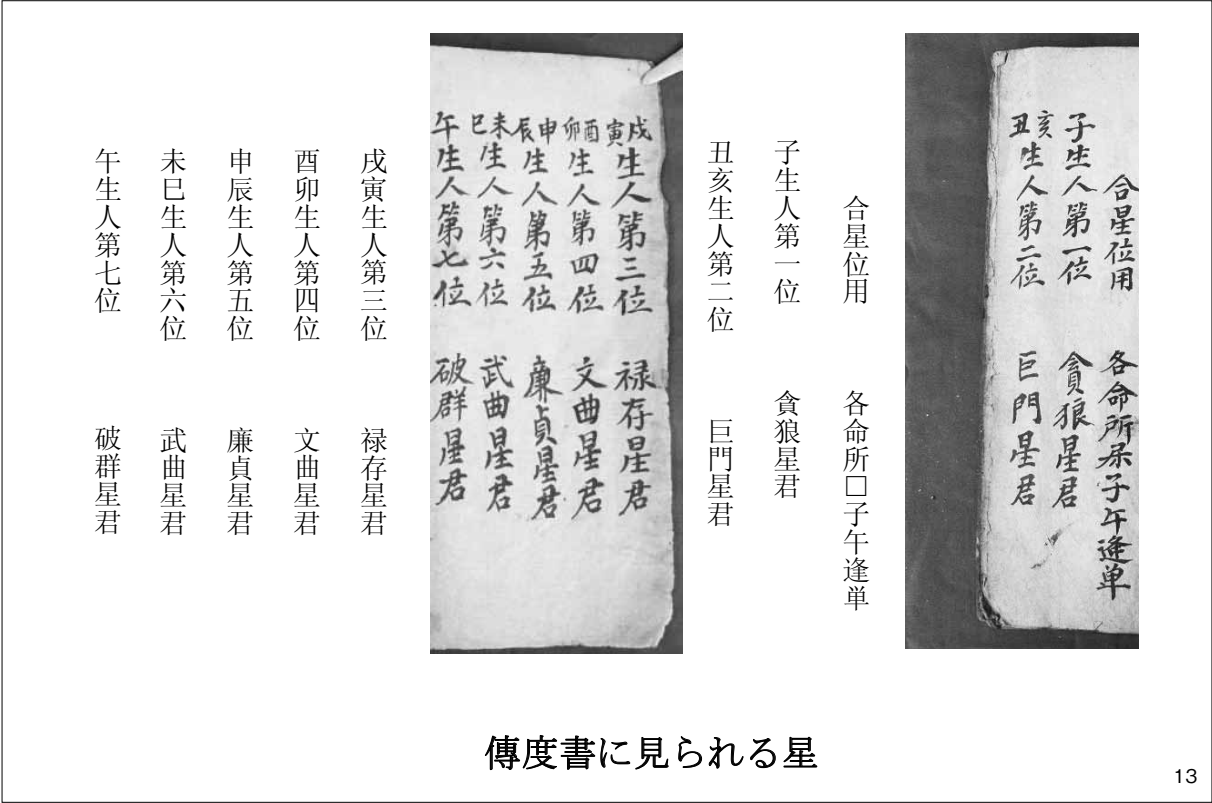 合星位用 各命所屎子午逢単
子生人第一位 貪狼星君
丑亥生人第二位 巨門星君
合星位用 各命所□子午逢単
子生人第一位 貪狼星君
丑亥生人第二位 巨門星君
戌寅生人第三位 禄存星君
酉卯生人第四位 文曲星君
申辰生人第五位 廉貞星君
未巳生人第六位 武曲星君
午生人第七位 破群星君
戌寅生人第三位 禄存星君
酉卯生人第四位 文曲星君
申辰生人第五位 廉貞星君
未巳生人第六位 武曲星君
午生人第七位 破群星君
傳度書に見られる星
13